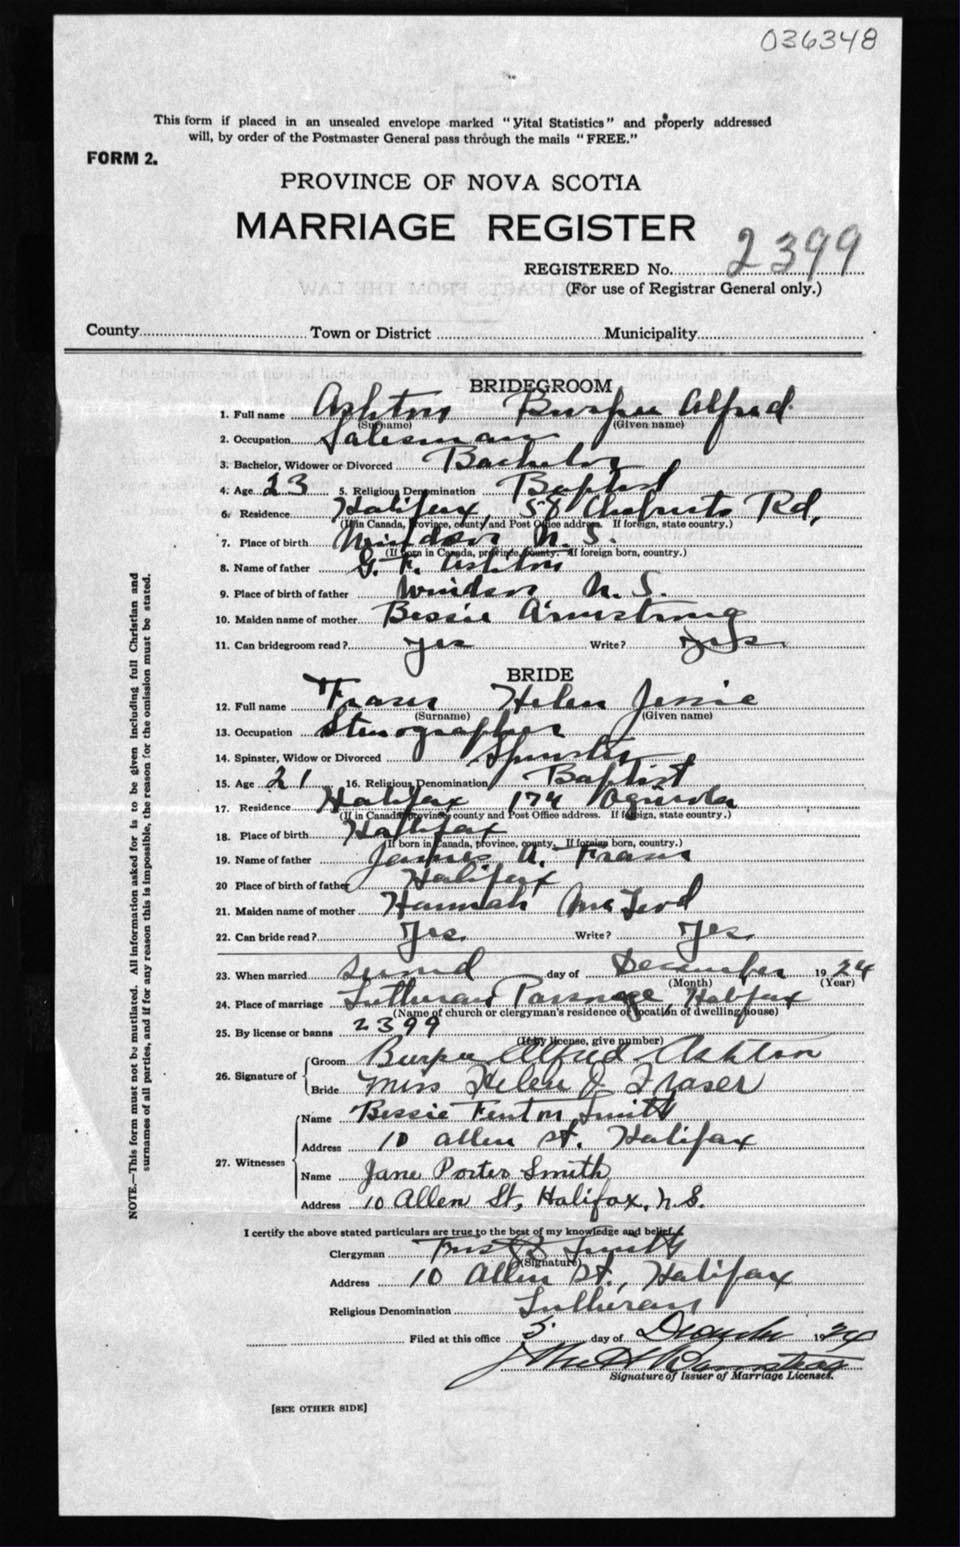 036348
This form if placed in an unsealed envelope marked "Vital Statistics" and properly addressed
will, by order of the Postmaster General pass through the mails "FREE."
FORM 2.
PROVINCE OF NOVA SCOTIA
MARRIAGE REGISTER
REGISTERED No. 2399
(For use of Registrar General only.)
County Town or District Municipality
BRIDEGROOM
1. Full name Ashton Burpee Alfred
(Surname) (Given name)
2. Occupation Salesman
3. Bachelor, Widower or Divorced Bachelor
4. Age 23 5. Religious Denomination Baptist
6. Residence Halifax, 58 Rd,
(If in Canada, Province, county and Post Office address. If foreign, state country.)
7. Place of birth Windsor N. S.
(If born in Canada, province, county. If foreign born, country.)
8. Name of father G. F. Ashton
9. Place of birth of father Windsor N. S.
10. Maiden name of mother Bessie Armstrong
11. Can bridegroom read? yes Write? yes
BRIDE
12. Full name Fraser Helen Jessie
(Surname) (Given name)
13. Occupation Stenographer
14. Spinster, Widow or Divorced Spinster
15. Age 21 16. Religious Denomination Baptist
17. Residence Halifax 174 Agricola
(If in Canada, province, county and Post Office address. If foreign, state country.)
18. Place of birth Halifax
(If born in Canada, province, county. If foreign born, country.)
19. Name of father James A. Fraser
20 Place of birth of father Halifax
21. Maiden name of mother Hannah McLeod
22. Can bride read? Yes. Write? Yes.
23. When married second day of December 1924
(Month) (Year)
24. Place of marriage Lutheran Parsonage, Halifax
(Name of church or clergyman's residence or location of dwelling house)
25. By license or banns 2399
(If by license, give number)
26. Signature of Groom Burpee Alfred Ashton
Bride Miss Helen J. Fraser
27. Witnesses Name Bessie Fenton Smith
Address 10 Allen St. Halifax
Name Jane Porter Smith
Address 10 Allen St, Halifax, N.S.
I certify the above stated particulars are true to the best of my knowledge and belief.
Clergyman Smith
(Signature)
Address 10 Allen St., Halifax
Religious Denomination Lutheran
Filed at this office 5 day of December 1924
Signature of Issuer of Marriage Licenses.
[SEE OTHER SIDE]
NOTE.—This form must not be mutilated. All information asked for is to be given including full Christian and
surnames of all parties, and if for any reason this is impossible, the reason for the omission must be stated.